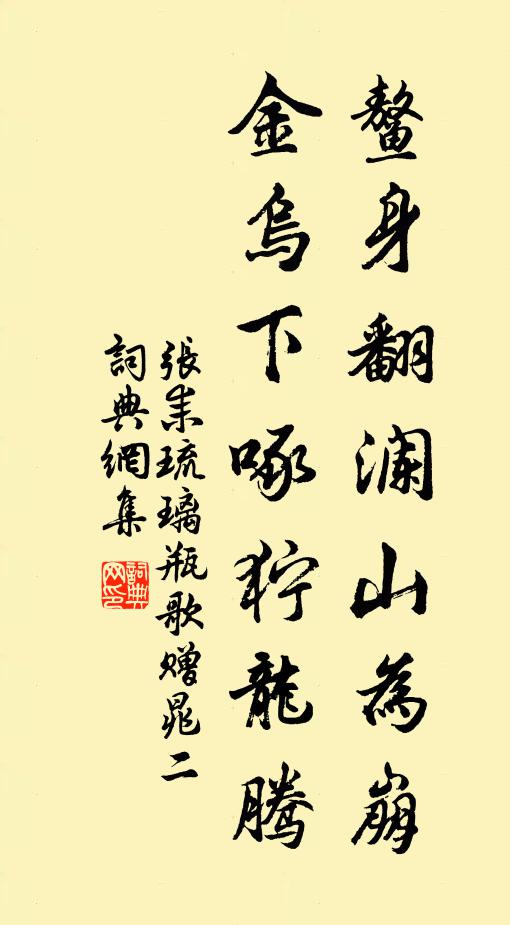 鼇身翻瀾山為崩
金烏下啄狞龍騰
張耒琉璃瓶歌贈晁二
詞典網集
詞典网印